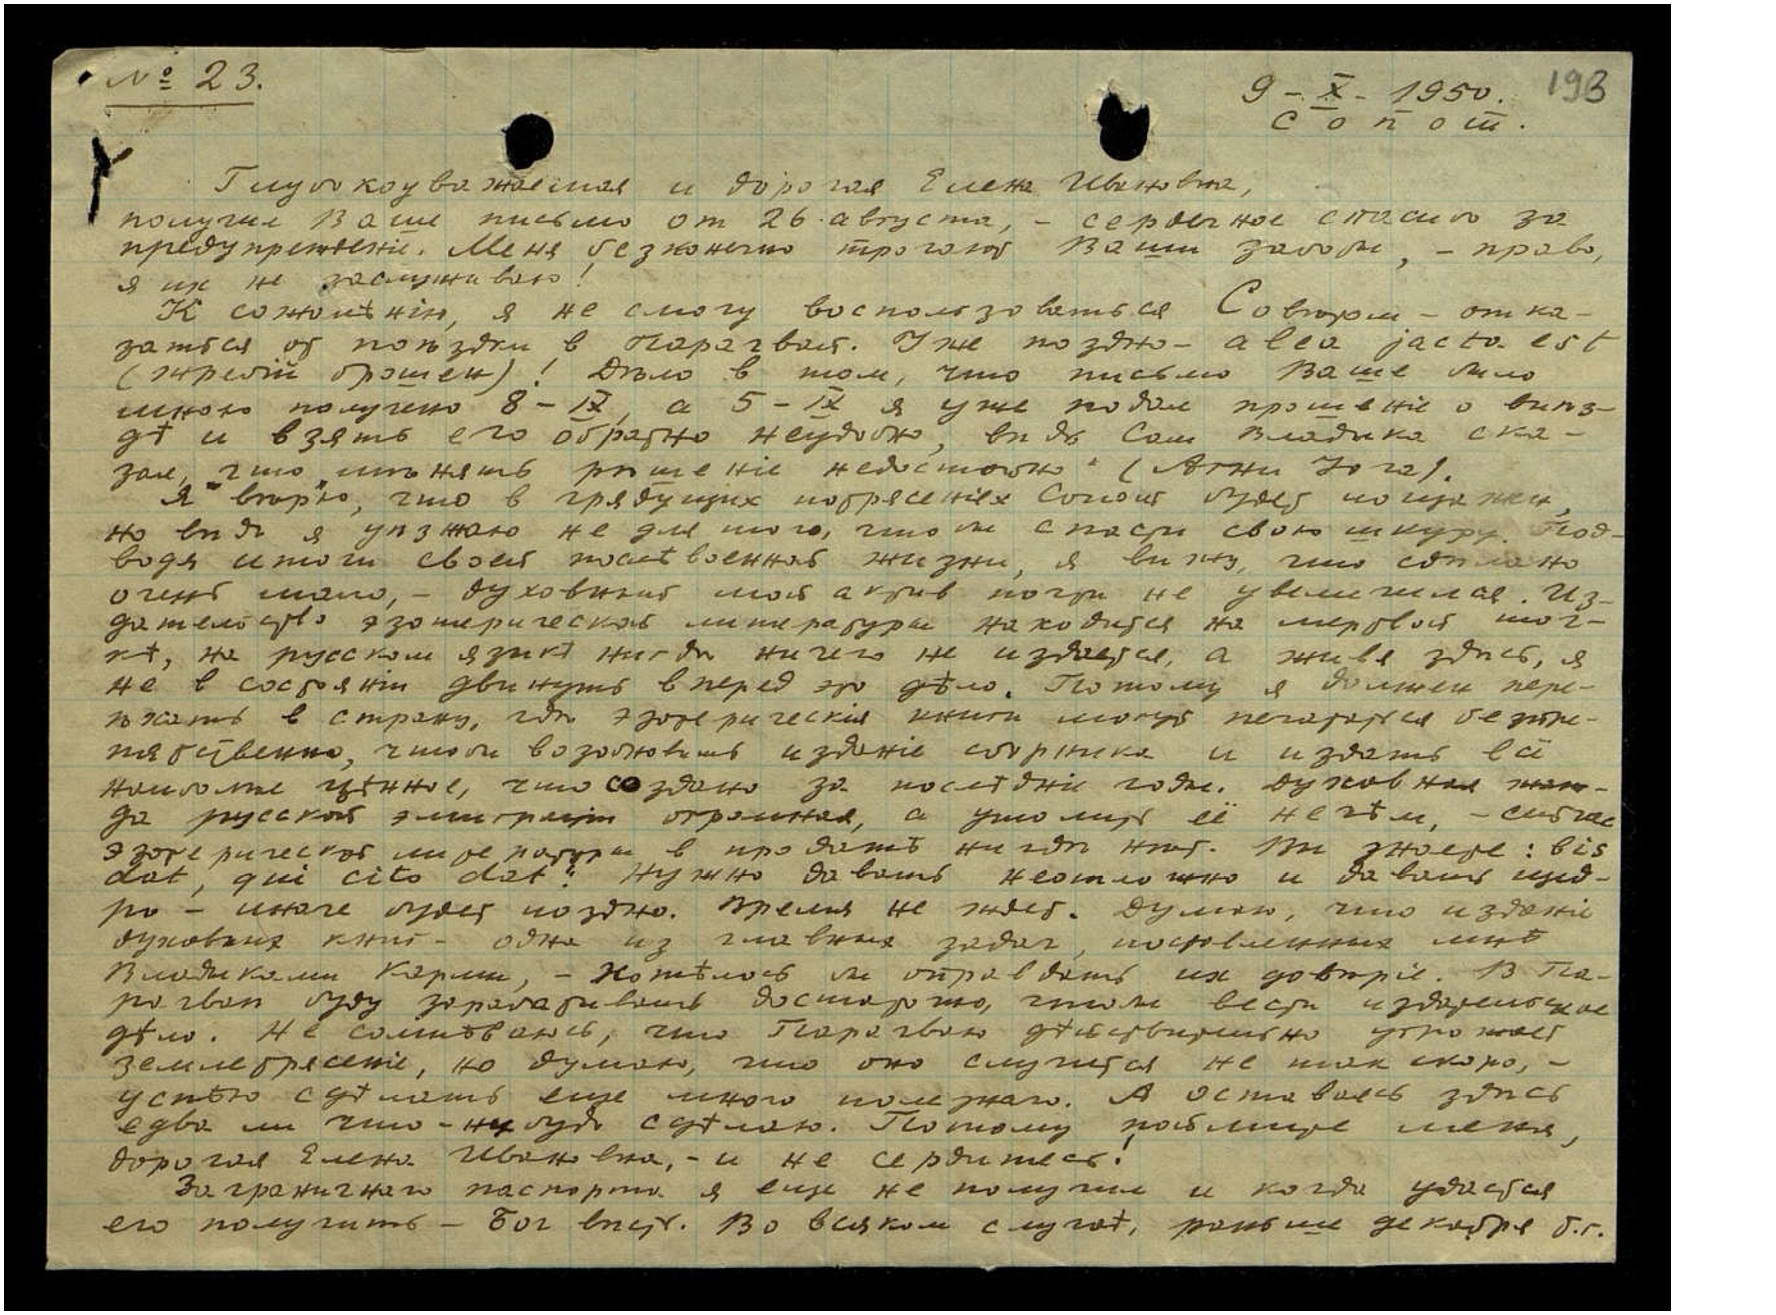 № 23.
9 – X – 1950. 193
Сопот.
Глубокоуважаемая и дорогая Елена Ивановна,
получил Ваше письмо от 26 августа, – сердечное спасибо за
предупрежденiе. Меня безконечно трогают Ваши заботы, – право,
я их не заслуживаю!
К сожалѣнiю, я не смогу воспользоваться Совѣтом – отка-
заться от поѣздки в Парагвай. Уже поздно – alea jacta est
(жребiй брошен)! Дѣло в том, что письмо Ваше было
мною получено 8 – IX, а 5 – IX я уже подал прошенiе о выѣз-
дѣ и взять его обратно неудобно, вѣдь Сам Владыка ска-
зал, что „мѣнять рѣшенiе недостойно“ (Агни Йога).
Я вѣрю, что в грядущих потрясенiях Сопот будет пощажен,
но вѣдь я уѣзжаю не для того, чтобы спасти свою шкуру. Под-
водя итоги своей послѣвоенной жизни, я вижу, что сдѣлано
очень мало, – духовный мой актив почти не увеличился. Из-
дательство эзотерической литературы находится на мертвой точ-
кѣ, на русском языкѣ нигдѣ ничего не издается, а живя здѣсь, я
не в состоянiи двинуть вперед это дѣло. Потому я должен пере-
ѣхать в страну, гдѣ эзотерическiя книги могут печататься безпре-
пятственно, чтобы возобновить изданiе сборника и издать всё
наиболѣе цѣнное, что создано за послѣднiе годы. Духовная жаж-
да русской эмиграцiи огромная, а утолить её нечѣм, – сейчас
эзотерической литературы в продажѣ нигдѣ нѣт. Вы знаете: „bis
dat, qui cito dat“! Нужно давать неотложно и давать щед-
ро – иначе будет поздно. Время не ждет. Думаю, что изданiе
духовных книг – одна из главных задач, поставленных мнѣ
Владыками Кармы, – хотѣлось бы оправдать их довѣрiе. В Па-
рагваѣ буду зарабатывать достаточно, чтобы вести издательское
дѣло. Не сомнѣваюсь, что Парагваю дѣйствительно угрожает
землетрясенiе, но думаю, что оно случится не так скоро, –
успѣю сдѣлать еще много полезнаго. А оставаясь здѣсь
едва ли что-нибудь сдѣлаю. Потому поймите меня,
дорогая Елена Ивановна, – и не сердитесь!
Заграничнаго паспорта я еще не получил и когда удастся
его получить – Бог вѣсть. Во всяком случаѣ, раньше декабря б.г.